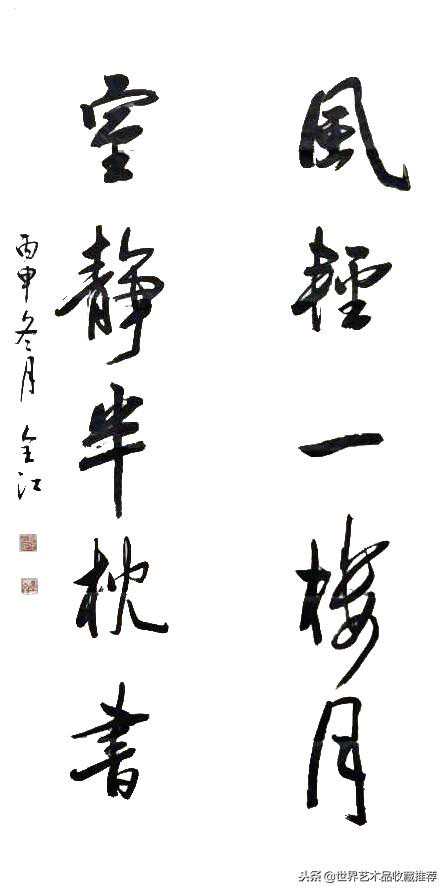 風輕一樓月
室靜半枕書
丙申冬月 全江
头条 @世界艺术品收藏推荐